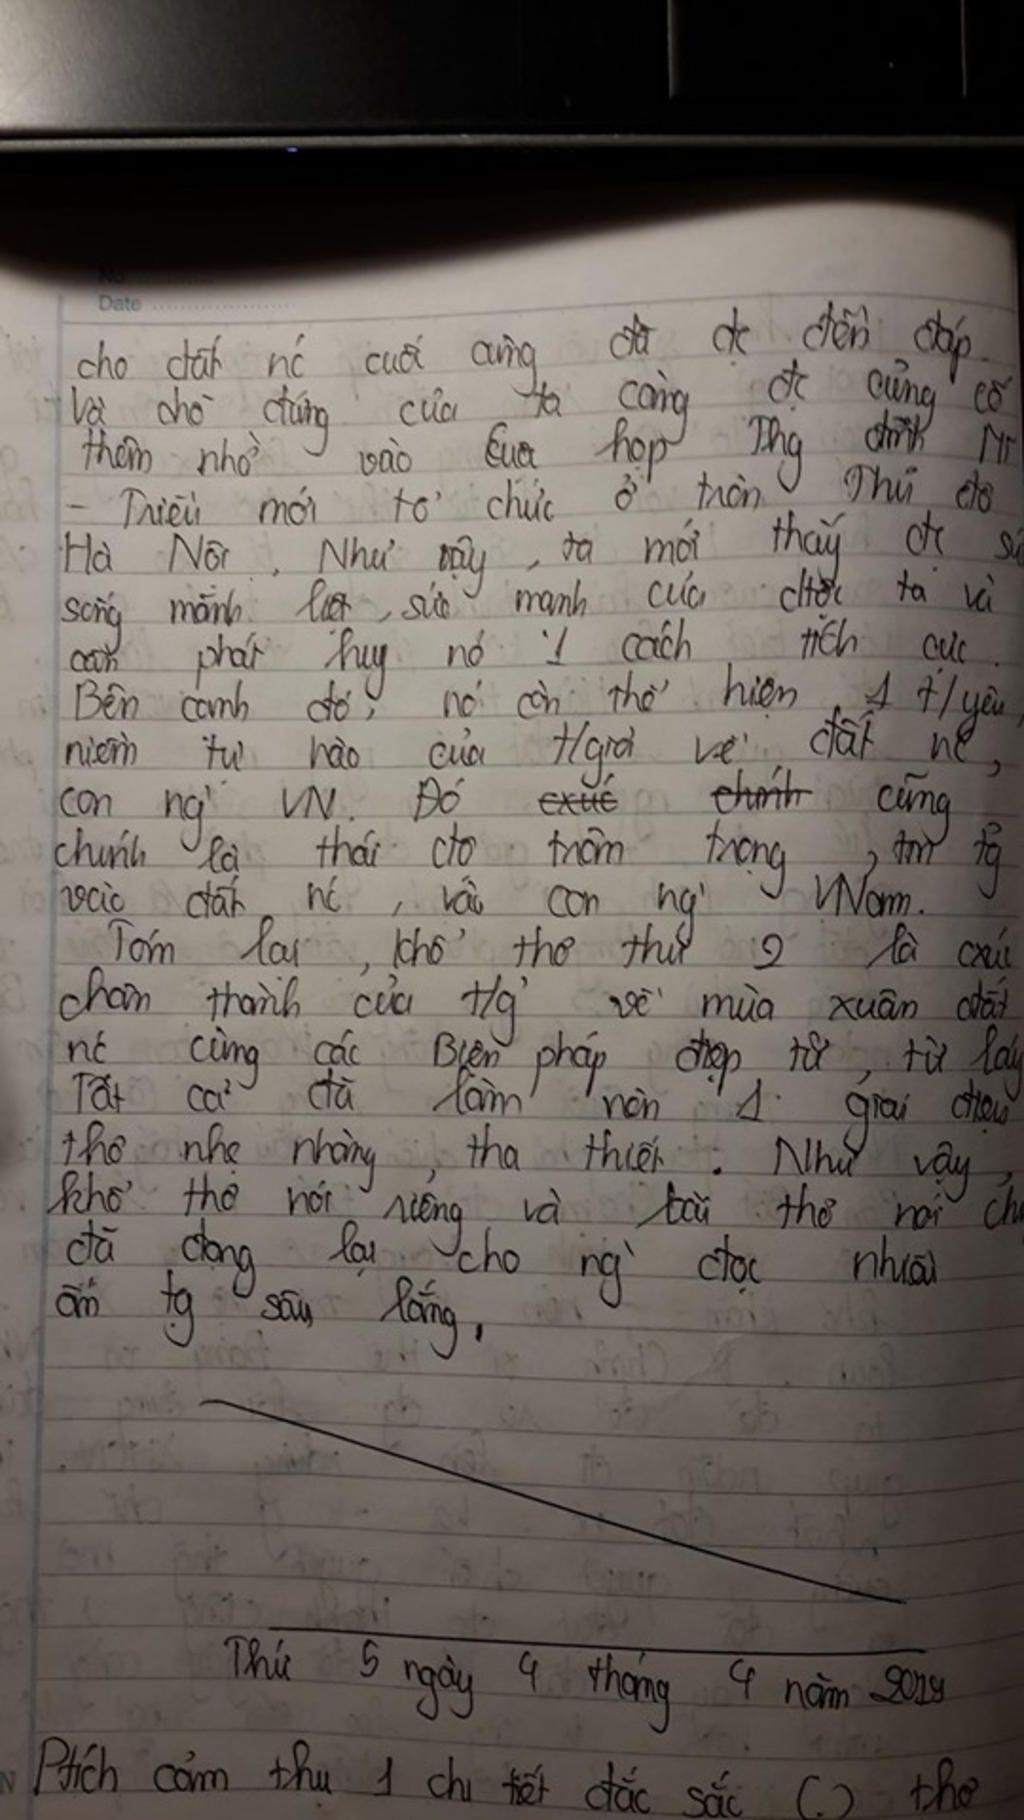 Date
cho đất nc cuối cùng đã đc đền đáp.
Và chỗ đứng của ta càng đc củng cố
thêm nhờ vào cuộc họp Thg đỉnh Mĩ
- Triều mới tổ chức ở trên Thủ đô
Hà Nội. Như vậy, ta mới thấy đc
sống mãnh liệt, sức mạnh của dtộc ta và
phát huy nó 1 cách tích cực.
Bên cạnh đó, nó còn thể hiện 1 t/yêu,
niềm tự hào của t/giả về đất nc,
con ng' VN. Đó cũng
chính là thái độ trân trọng, tin tg
vào đất nc, vào con ng' VNam.
Tóm lại, khổ thơ thứ 2 là cxúc
chân thành của t/g' về mùa xuân đất
nc cùng các Biện pháp điệp từ, từ láy
Tất cả đã làm nên 1 giai điệu
thơ nhẹ nhàng, tha thiết. Như vậy,
khổ thơ nói riêng và bài thơ nói
đã đọng lại cho ng' đọc nhiều
ấn tg sâu lắng.
Thứ 5 ngày 4 tháng 4 năm 2019
Ptích cảm thụ 1 chi tiết đặc sắc ( ) thơ